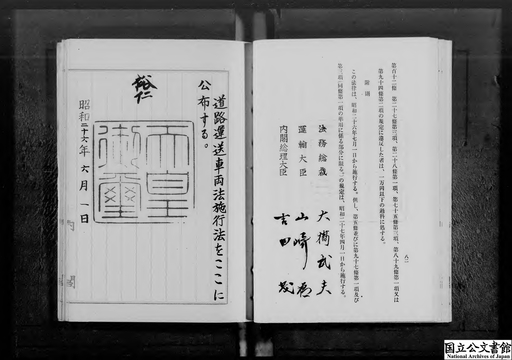 第百十二條 第二十七條第二項、第二十八條第一項、第七十五條第三項、第八十九條第一項又は
第九十四條第二項の規定に違反した者は、一万円以下の過料に処する。
附則
この法律は、昭和二十六年七月一日から施行する。但し、第五條並びに第九十七條第一項及び
第三項(同條第一項の車両に係る部分に限る。)の規定は、昭和二十七年四月一日から施行する。
法務総裁 大橋武夫
運輸大臣 山崎猛
内閣総理大臣 吉田茂
道路運送車両法施行法をここに
公布する。
裕仁
天皇御璽
昭和二十六年六月一日
内閣
国立公文書館
National Archives of Japan